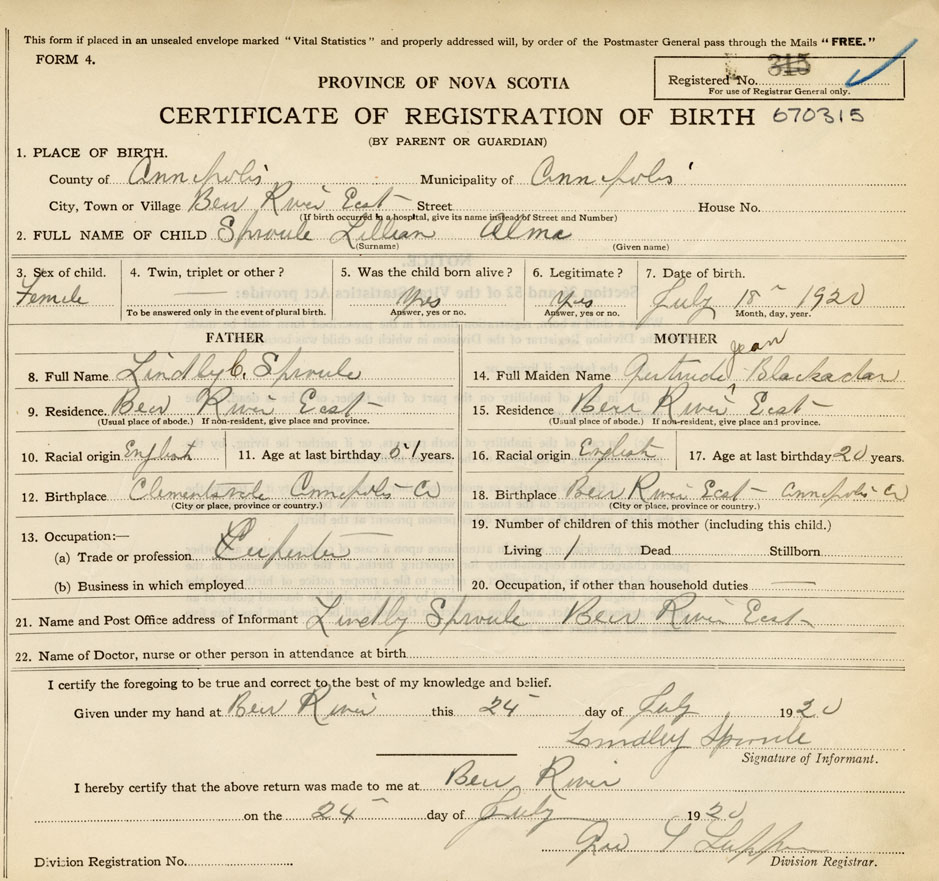 This form if placed in an unsealed envelope marked "Vital Statistics" and properly addressed will, by order of the Postmaster General pass through the Mails "FREE."
FORM 4.
Registered No. 315
For use of Registrar General only.
PROVINCE OF NOVA SCOTIA
CERTIFICATE OF REGISTRATION OF BIRTH 670315
(BY PARENT OR GUARDIAN)
1. PLACE OF BIRTH.
County of Annapolis Municipality of Annapolis
City, Town or Village Bear River East Street House No.
(If birth occurred in a hospital, give its name instead of Street and Number)
2. FULL NAME OF CHILD Sproule Lillian Alma
(Surname) (Given name)
3. Sex of child. 4. Twin, triplet or other? 5. Was the child born alive? 6. Legitimate? 7. Date of birth.
Female Yes Yes July 18 1920
To be answered only in the event of plural birth. Answer, yes or no. Answer, yes or no. Month, day, year.
FATHER MOTHER
8. Full Name Lindley C. Sproule 14. Full Maiden Name Gertrude Jean Blackadar
9. Residence. Bear River East 15. Residence Bear River East
(Usual place of abode.) If non-resident, give place and province. (Usual place of abode.) If non-resident, give place and province.
10. Racial origin English 11. Age at last birthday years. 16. Racial origin English 17. Age at last birthday 20 years.
12. Birthplace Clementsvale Annapolis Co 18. Birthplace Bear River East Annapolis Co
(City or place, province or country.) (City or place, province or country.)
13. Occupation:— 19. Number of children of this mother (including this child.)
(a) Trade or profession Carpenter Living 1 Dead Stillborn
(b) Business in which employed 20. Occupation, if other than household duties
21. Name and Post Office address of Informant Lindley Sproule Bear River East
22. Name of Doctor, nurse or other person in attendance at birth
I certify the foregoing to be true and correct to the best of my knowledge and belief.
Given under my hand at Bear River this 24 day of July 1920
Lindley Sproule
Signature of Informant.
I hereby certify that the above return was made to me at Bear River
on the 24 day of July 1920
Division Registration No. Division Registrar.